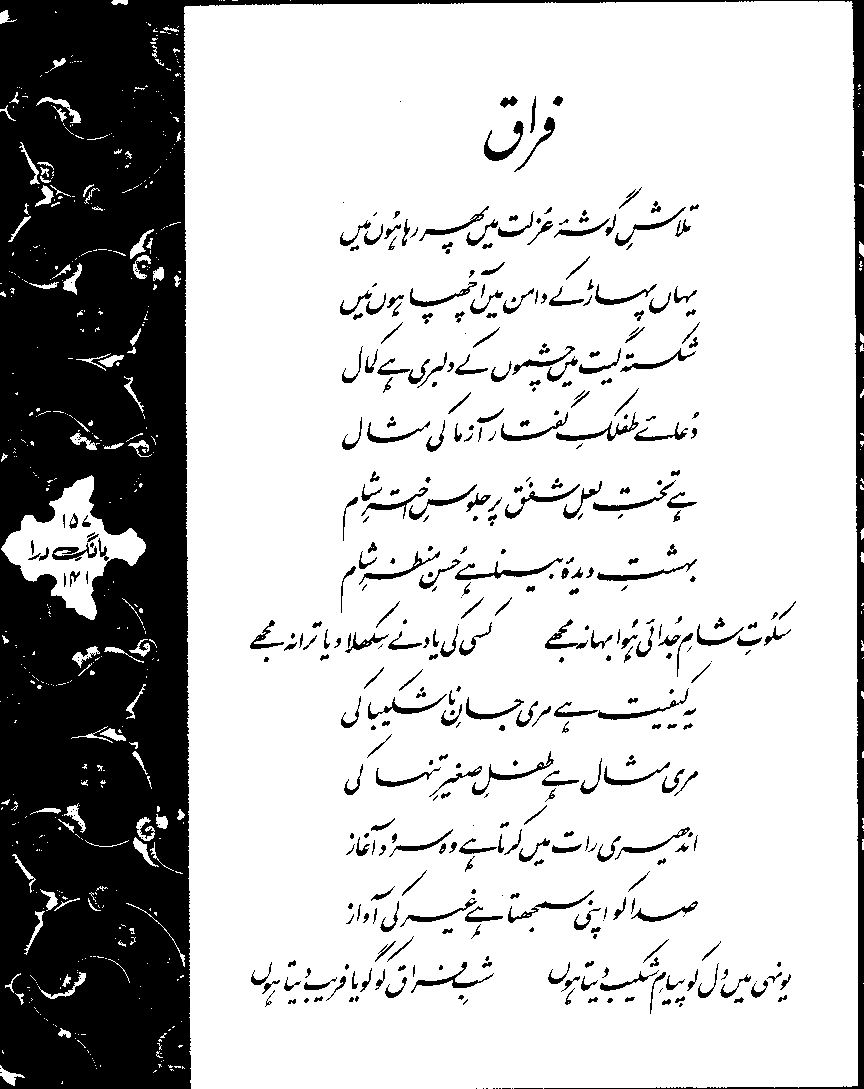 فراق
تلاشِ گوشۂ عُزلت میں پھر رہا ہُوں مَیں
یہاں پہاڑ کے دامن میں آ چھُپا ہوں مَیں
شکستہ گیت میں چشموں کے دلبری ہے کمال
دُعائے طفلکِ گفتار آزما کی مثال
ہے تختِ لعلِ شفَق پر جلوسِ اخترِ شام
بہشتِ دیدۂ بینا ہے حُسنِ منظرِ شام
سکُوتِ شامِ جُدائی ہُوا بہانہ مجھے کسی کی یاد نے سِکھلا دیا ترانہ مجھے
یہ کیفیت ہے مری جانِ ناشکیبا کی
مری مثال ہے طفلِ صغیرِ تنہا کی
اندھیری رات میں کرتا ہے وہ سرود آغاز
صدا کو اپنی سمجھتا ہے غیر کی آواز
یونہی میں دل کو پیامِ شکیب دیتا ہوں شبِ فراق کو گویا فریب دیتا ہوں
۱۵۷
بانگِ درا
۱۴۱